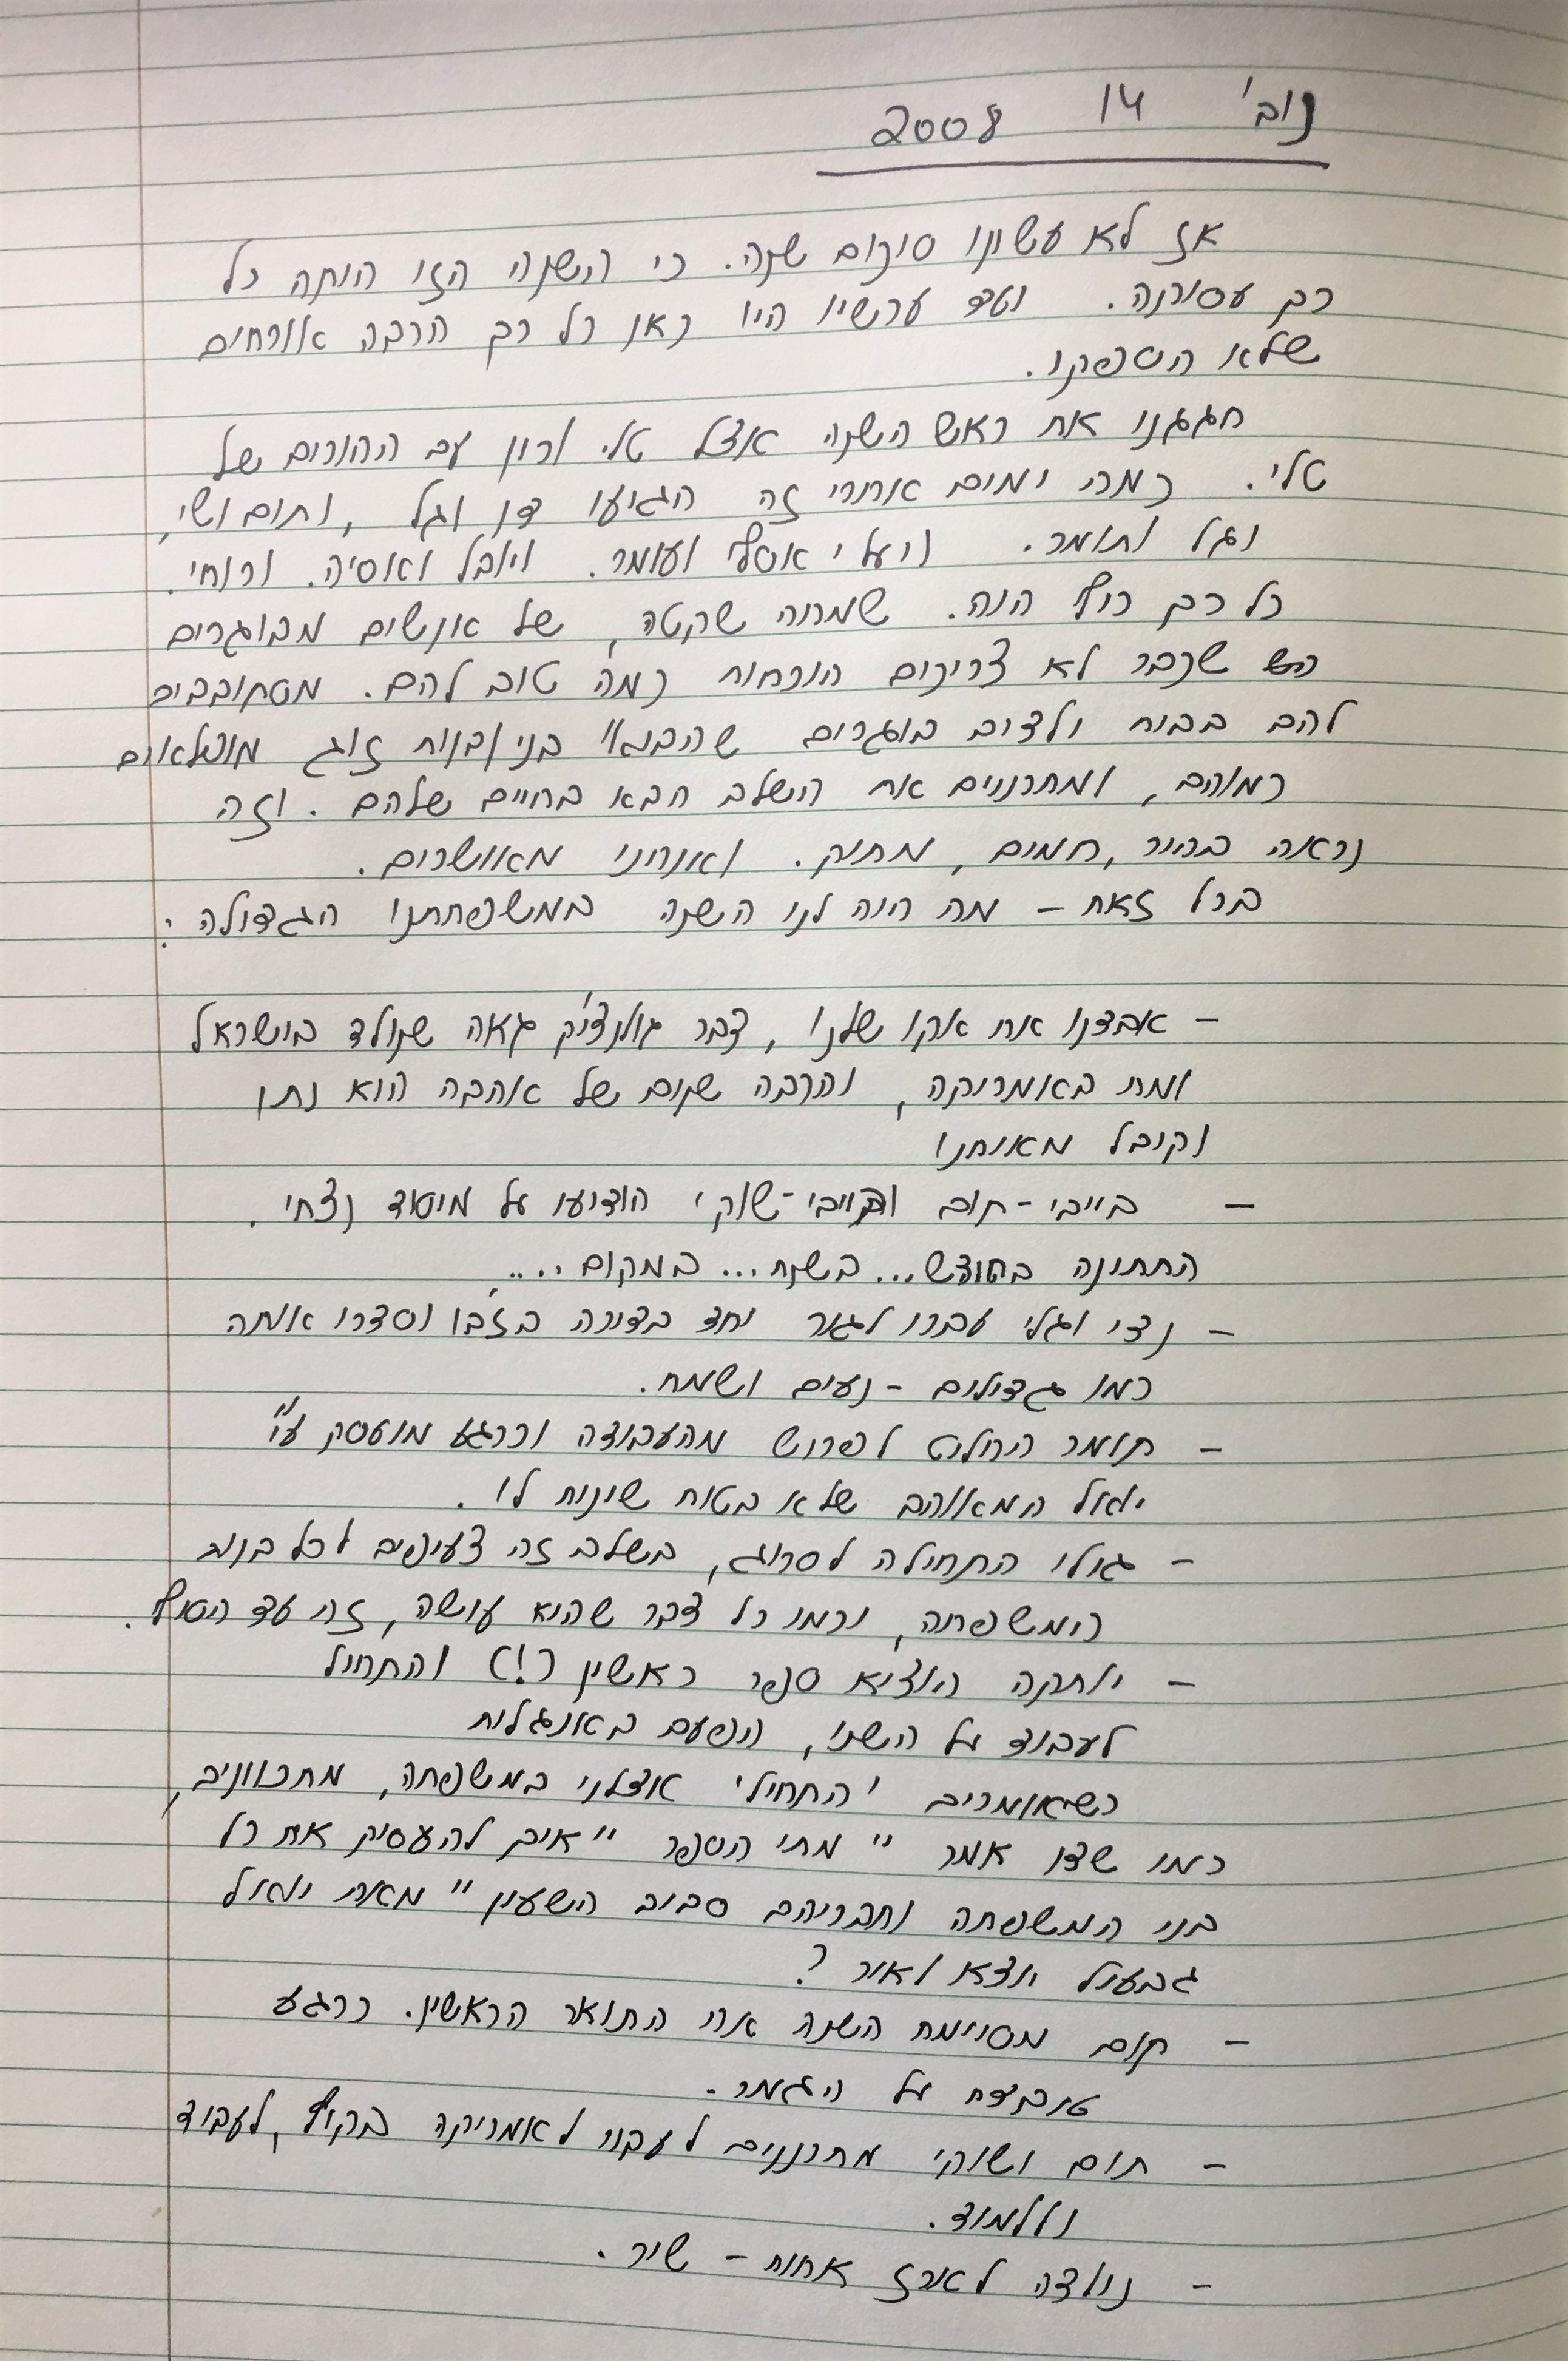 נוב' 14 2008
אז לא עשינו סיכום שנה. כי השנה הזו היתה כל
כך עסוקה. ועד עכשיו היו כאן כל כך הרבה אורחים
שלא הספקנו.
חגגנו את ראש השנה אצל טלי ורון עם ההורים של
טלי. כמה ימים אחרי זה הגיעו דן וגל, ותום ושי,
וגל ותומר. ויעלי אסף ועומר. ויובל ואסיה. ורוחי.
כל כך כיף היה. שמחה שקטה, של אנשים מבוגרים
שכבר לא צריכים הוכחות כמה טוב להם. מסתובבים
להם בבית ילדים בוגרים שהביאו בני/בנות זוג מופלאים
כמוהם, ומתכננים את השלב הבא בחיים שלהם. וזה
נראה בהיר, חמים, מתוק. ואנחנו מאושרים.
בכל זאת - מה היה לנו השנה במשפחתנו הגדולה:
- אבדנו את אקו שלנו, כבר גולנצ'יק גאה שנולד בישראל
ומת באמריקה, והרבה שנים של אהבה הוא נתן
וקיבל מאיתנו
- בייבי-תום ובייבי-שוקי הודיעו על מיסוד נצחי.
החתונה בחודש... בשנת... במקום....
- נדי וגלי עברו לגור יחד בדירה בז'בו וסדרו אותה
כמו גדולים - נעים ושמח.
- תומר החליט לפרוש מהעבודה וכרגע מועסק ע"י
יואל המאוהב שלא בטוח שינוח לו.
- גולי התחילה לסרוג, בשלב זה צעיפים לכל בנות
המשפחה, וכמו כל דבר שהיא עושה, זה עד הסוף.
- יותקה הוציא ספר ראשון (!) והתחיל
לעבוד על השני, הפעם באנגלית
כשאומרים 'התחיל' אצלנו במשפחה, מתכוונים,
כמו שדן אמר "מתי הספר "איך להעסיק את כל
בני המשפחה וחבריהם סביב השעון" מאת יואל
גבעול יוצא לאור?
- תום מסיימת השנה את התואר הראשון. כרגע
עובדת על הגמר.
- תום ושוקי מתכננים לעבור לאמריקה בקיץ, לעבוד
וללמוד.
- נולדה לארז אחות - שיר.